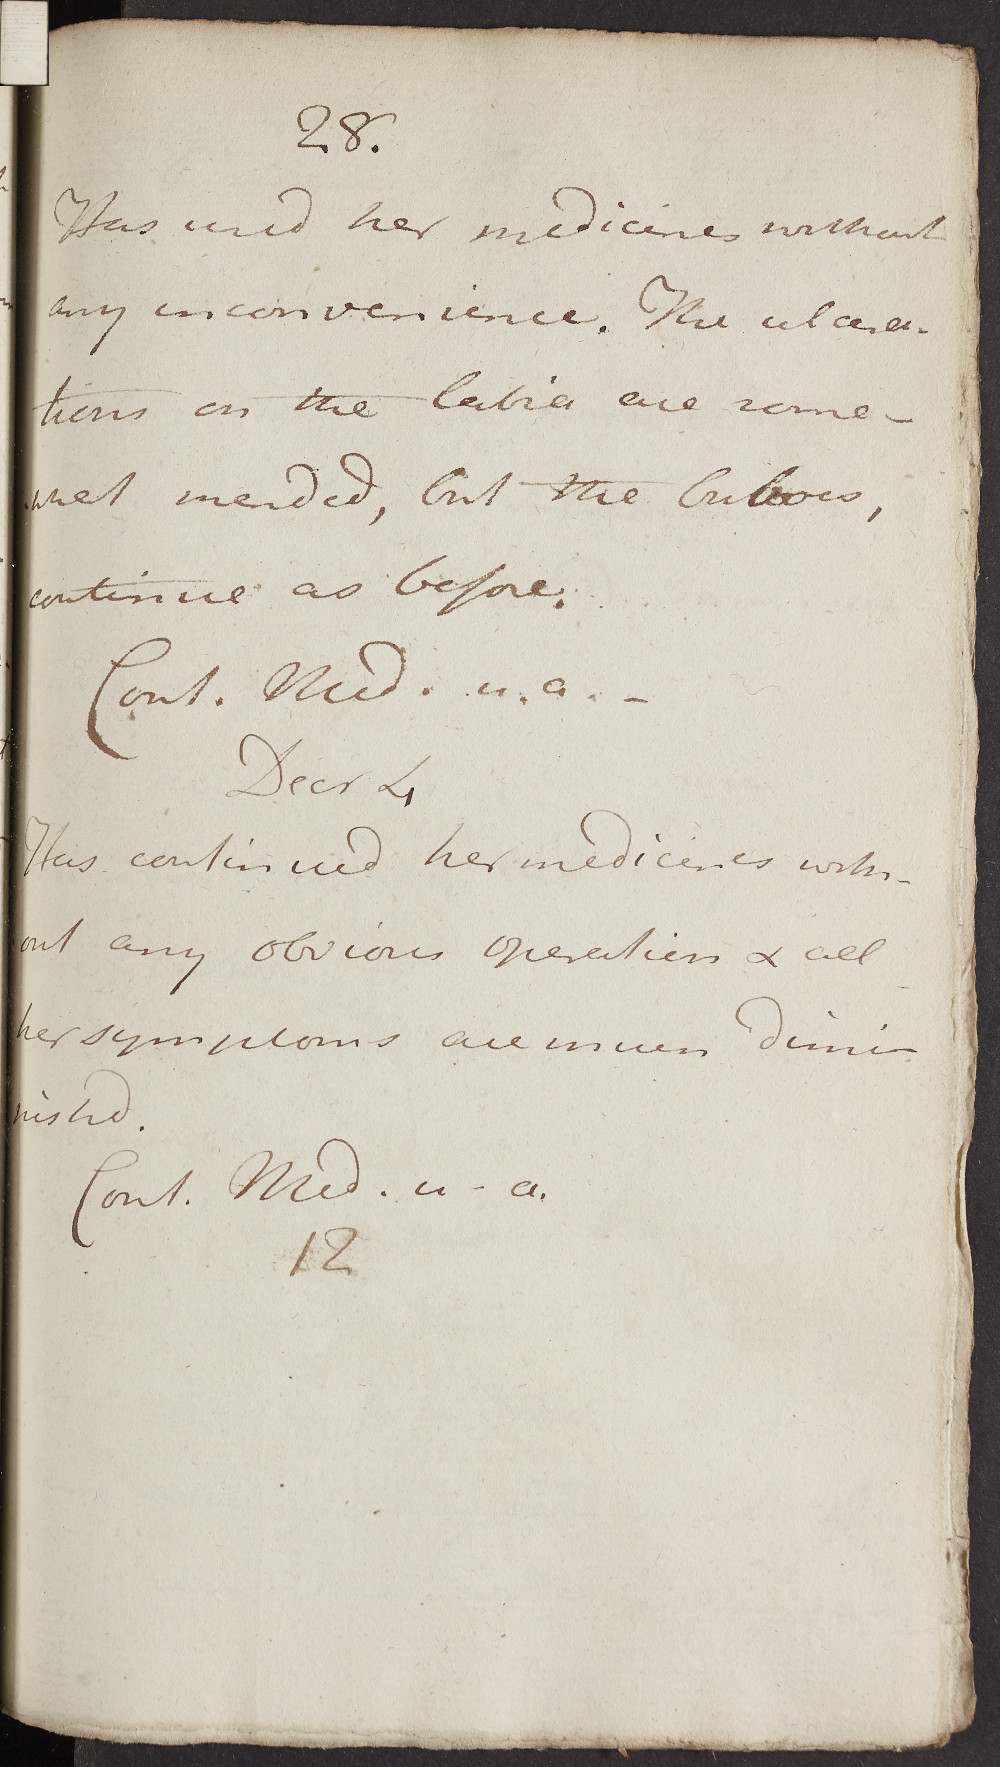 28.
Has used her medicines without
any inconvenience. The ulcera-
tions on the labia are some-
what mended, but the buboes,
continue as before.
Cont. Med. u.a. -
Decr 4
Has continued her medicines with-
out any obvious operation & all
her symptoms are much dimi-
nished.
Cont. Med. u-a.
12